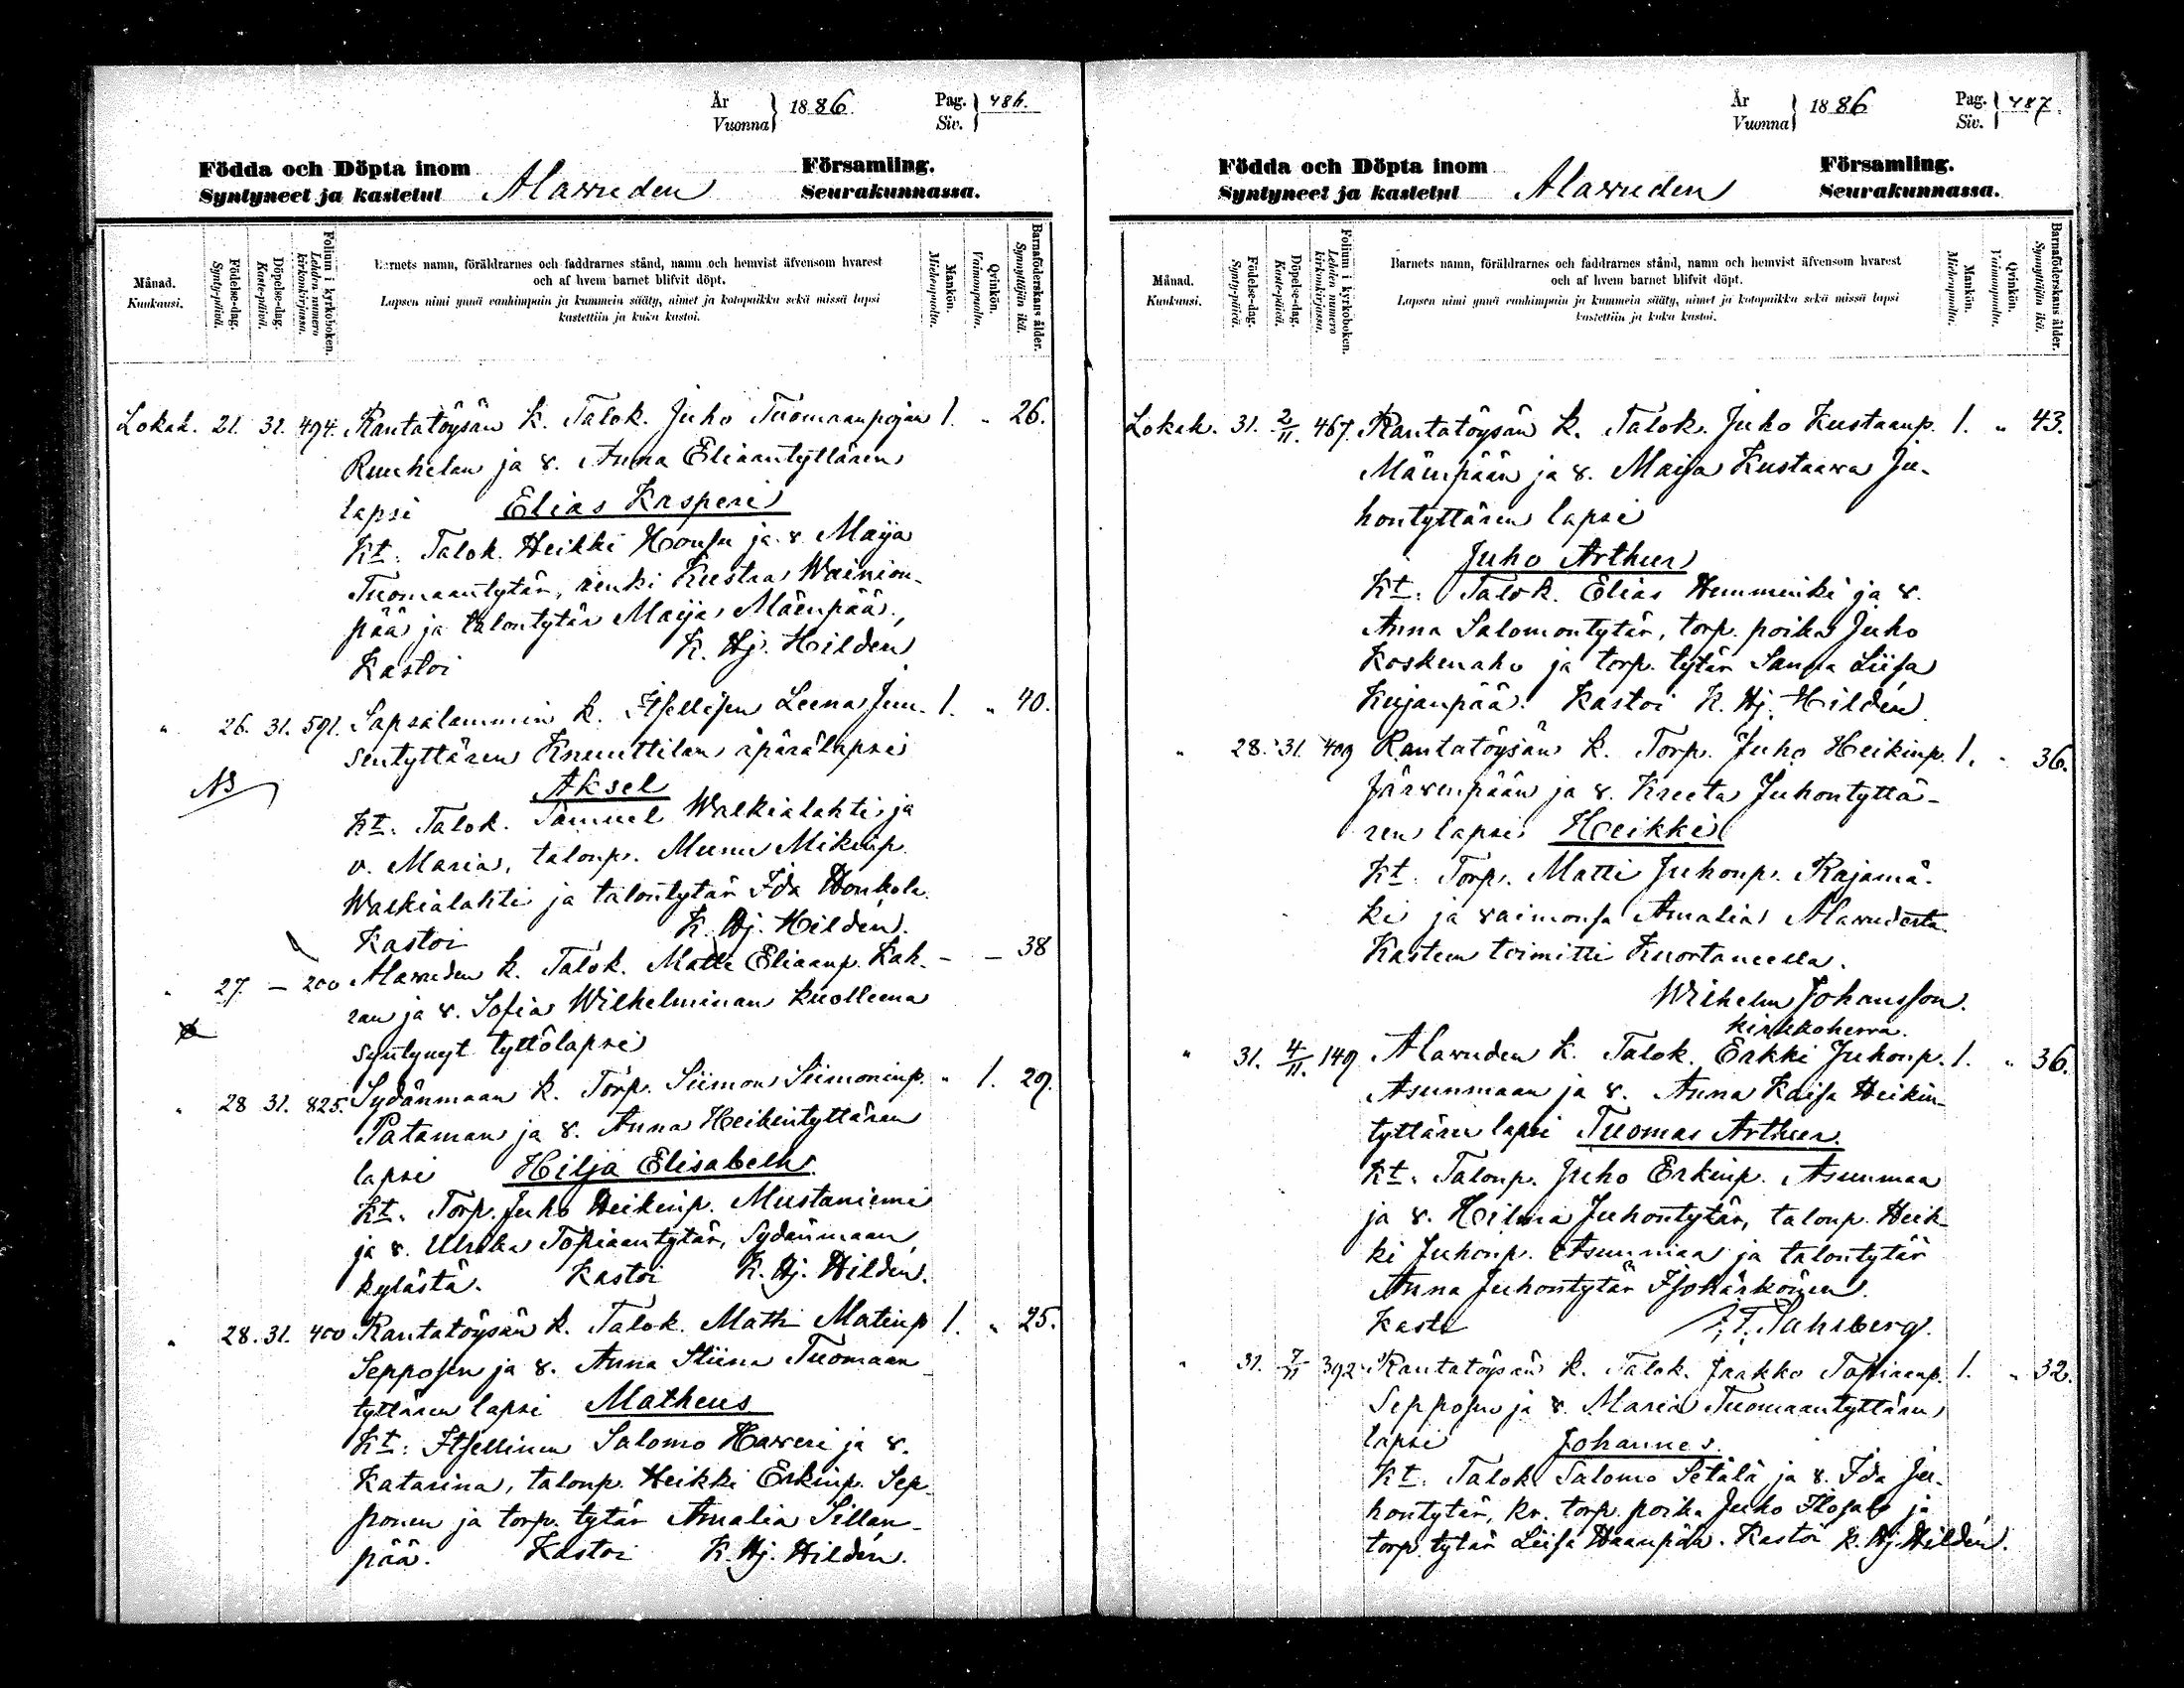 År
Vuonna } 1886.
Pag.
Siv. } 486.
Födda och Döpta inom Församling.
Syntyneet ja kastetut Alavuden Seurakunnassa.
Månad.
Kuukausi.
Födelse-dag.
Synty-päivä.
Döpelse-dag.
Kaste-päivä.
Folium i kyrkoboken.
Lehden numero
kirkonkirjassa.
Barnets namn, föräldrarnes och faddrarnes stånd, namn och hemvist äfvensom hvarest
och af hvem barnet blifvit döpt.
Lapsen nimi ynnä vanhimpain ja kummein sääty, nimet ja kotopaikka sekä missä lapsi
kastettiin ja kuka kastoi.
Mankön.
Miehenpuolta.
Qvinkön.
Vaimonpuolta.
Barnaföderskans ålder.
Synnyttäjän ikä.
Lokak. 21. 31. 494. Rantatöysän k. Talok. Juho Tuomaanpojan 1. " 26.
Ruuhelan ja v. Anna Eliaantyttären
lapsi Elias Kasperi
Kt: Talok. Heikki Honsu ja v. Maija
Tuomaantytär, renki Kustaa Wainion-
pää ja talontytär Maija Mäenpää,
Kastoi K. Hj. Hildén
" 26. 31. 591. Sapsalammin k. Itsellisen Leena Juu- 1. " 40.
sentyttären Knuuttilan äpärälapsi
NB
Aksel
Kt: Talok. Samuel Walkialahti ja
v. Maria, talonp. Manu Mikinp.
Walkialahti ja talontytär Ida Honkola
Kastoi K. Hj. Hildén.
" 27. – 200 Alavuden k. Talok. Matti Eliaanp. Kah- – – 38
ran ja v. Sofia Wilhelminan kuolleena
syntynyt tyttölapsi
" 28 31. 825. Sydänmaan k. Torp. Siimon Siimoninp. " 1. 29.
Pataman ja v. Anna Heikintyttären
lapsi Hilja Elisabeth.
Kt. Torp. Juho Heikinp. Mustaniemi
ja v. Ulrika Topiaantytär, Sydänmaan
kylästä. Kastoi K. Hj. Hildén.
" 28. 31. 400 Rantatöysän k. Talok. Matti Matinp 1. " 25.
Sepposen ja v. Anna Stiina Tuomaan-
tyttären lapsi Matheus
Kt: Itsellinen Salomo Haveri ja v.
Katarina, talonp. Heikki Erkinp. Sep-
ponen ja torp. tytär Amalia Sillan-
pää. Kastoi K. Hj. Hildén.
År
Vuonna } 1886
Pag.
Siv. } 487.
Födda och Döpta inom Församling.
Syntyneet ja kastetut Alavuden Seurakunnassa.
Månad.
Kuukausi.
Födelse-dag.
Synty-päivä.
Döpelse-dag.
Kaste-päivä.
Folium i kyrkoboken.
Lehden numero
kirkonkirjassa.
Barnets namn, föräldrarnes och faddrarnes stånd, namn och hemvist äfvensom hvarest
och af hvem barnet blifvit döpt.
Lapsen nimi ynnä vanhimpain ja kummein sääty, nimet ja kotopaikka sekä missä lapsi
kastettiin ja kuka kastoi.
Mankön.
Miehenpuolta.
Qvinkön.
Vaimonpuolta.
Barnaföderskans ålder.
Synnyttäjän ikä.
Lokak. 31. 2/11. 467. Rantatöysän k. Talok. Juho Kustaanp. 1. " 43.
Mäenpään ja v. Maija Kustaava Ju-
hontyttären lapsi
Juho Arthur
Kt: Talok. Elias Hemminki ja v.
Anna Salomontytär, torp. poika Juho
Koskenaho ja torp. tytär Sanna Liisa
Kujanpää. Kastoi K. Hj. Hildén.
" 28. 31. 409 Rantatöysän k. Torp. Juho Heikinp. 1. " 36.
Järvenpään ja v. Kreeta Juhontyttä-
ren lapsi Heikki
Kt: Torp. Matti Juhonp. Rajamä-
ki ja vaimonsa Amalia Alavudesta.
Kasteen toimitti Kuortaneella.
Wilhelm Johansson.
kirkkoherra.
" 31. 4/11. 149 Alavuden k. Talok. Erkki Juhonp. 1. " 36.
Asunmaan ja v. Anna Kaisa Heikin-
tyttären lapsi Tuomas Arthur.
Kt. Talonp. Juho Erkinp. Asunmaa
ja v. Hilma Juhontytär, talonp. Heik-
ki Juhonp. Asunmaa ja talontytär
Anna Juhontytär Isohärkönen.
Kast.
" 31. 7/11 392 Rantatöysän k. Talok. Jaakko Topiaanp. 1. " 32.
Sepposen ja v. Maria Tuomaantyttären
lapsi Johannes.
Kt. Talok. Salomo Setälä ja v. Ida Ju-
hontytär, kr. torp. poika Juho Ilosalo ja
torp. tytär Liisa Haanpää. Kastoi K. Hj. Hildén.